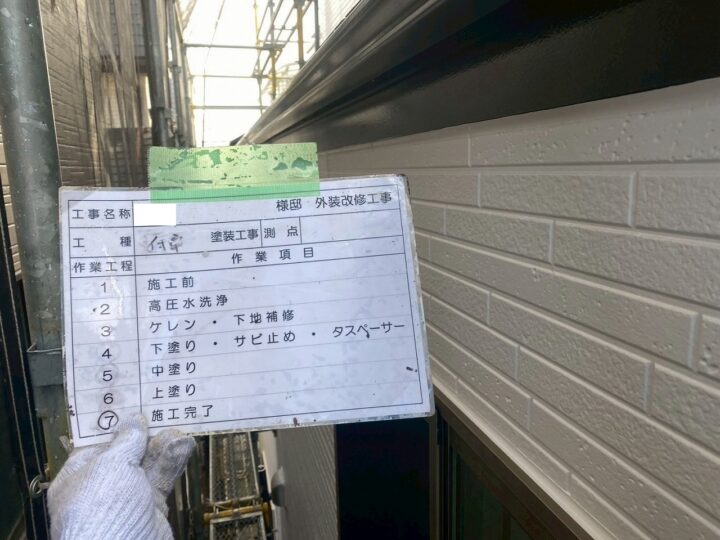 工事名称 様邸 外装改修工事
工種 付帯 塗装工事 測点
作業工程 作業項目
1 施工前
2 高圧水洗浄
3 ケレン・下地補修
4 下塗り・サビ止め・タスペーサー
5 中塗り
6 上塗り
⑦ 施工完了